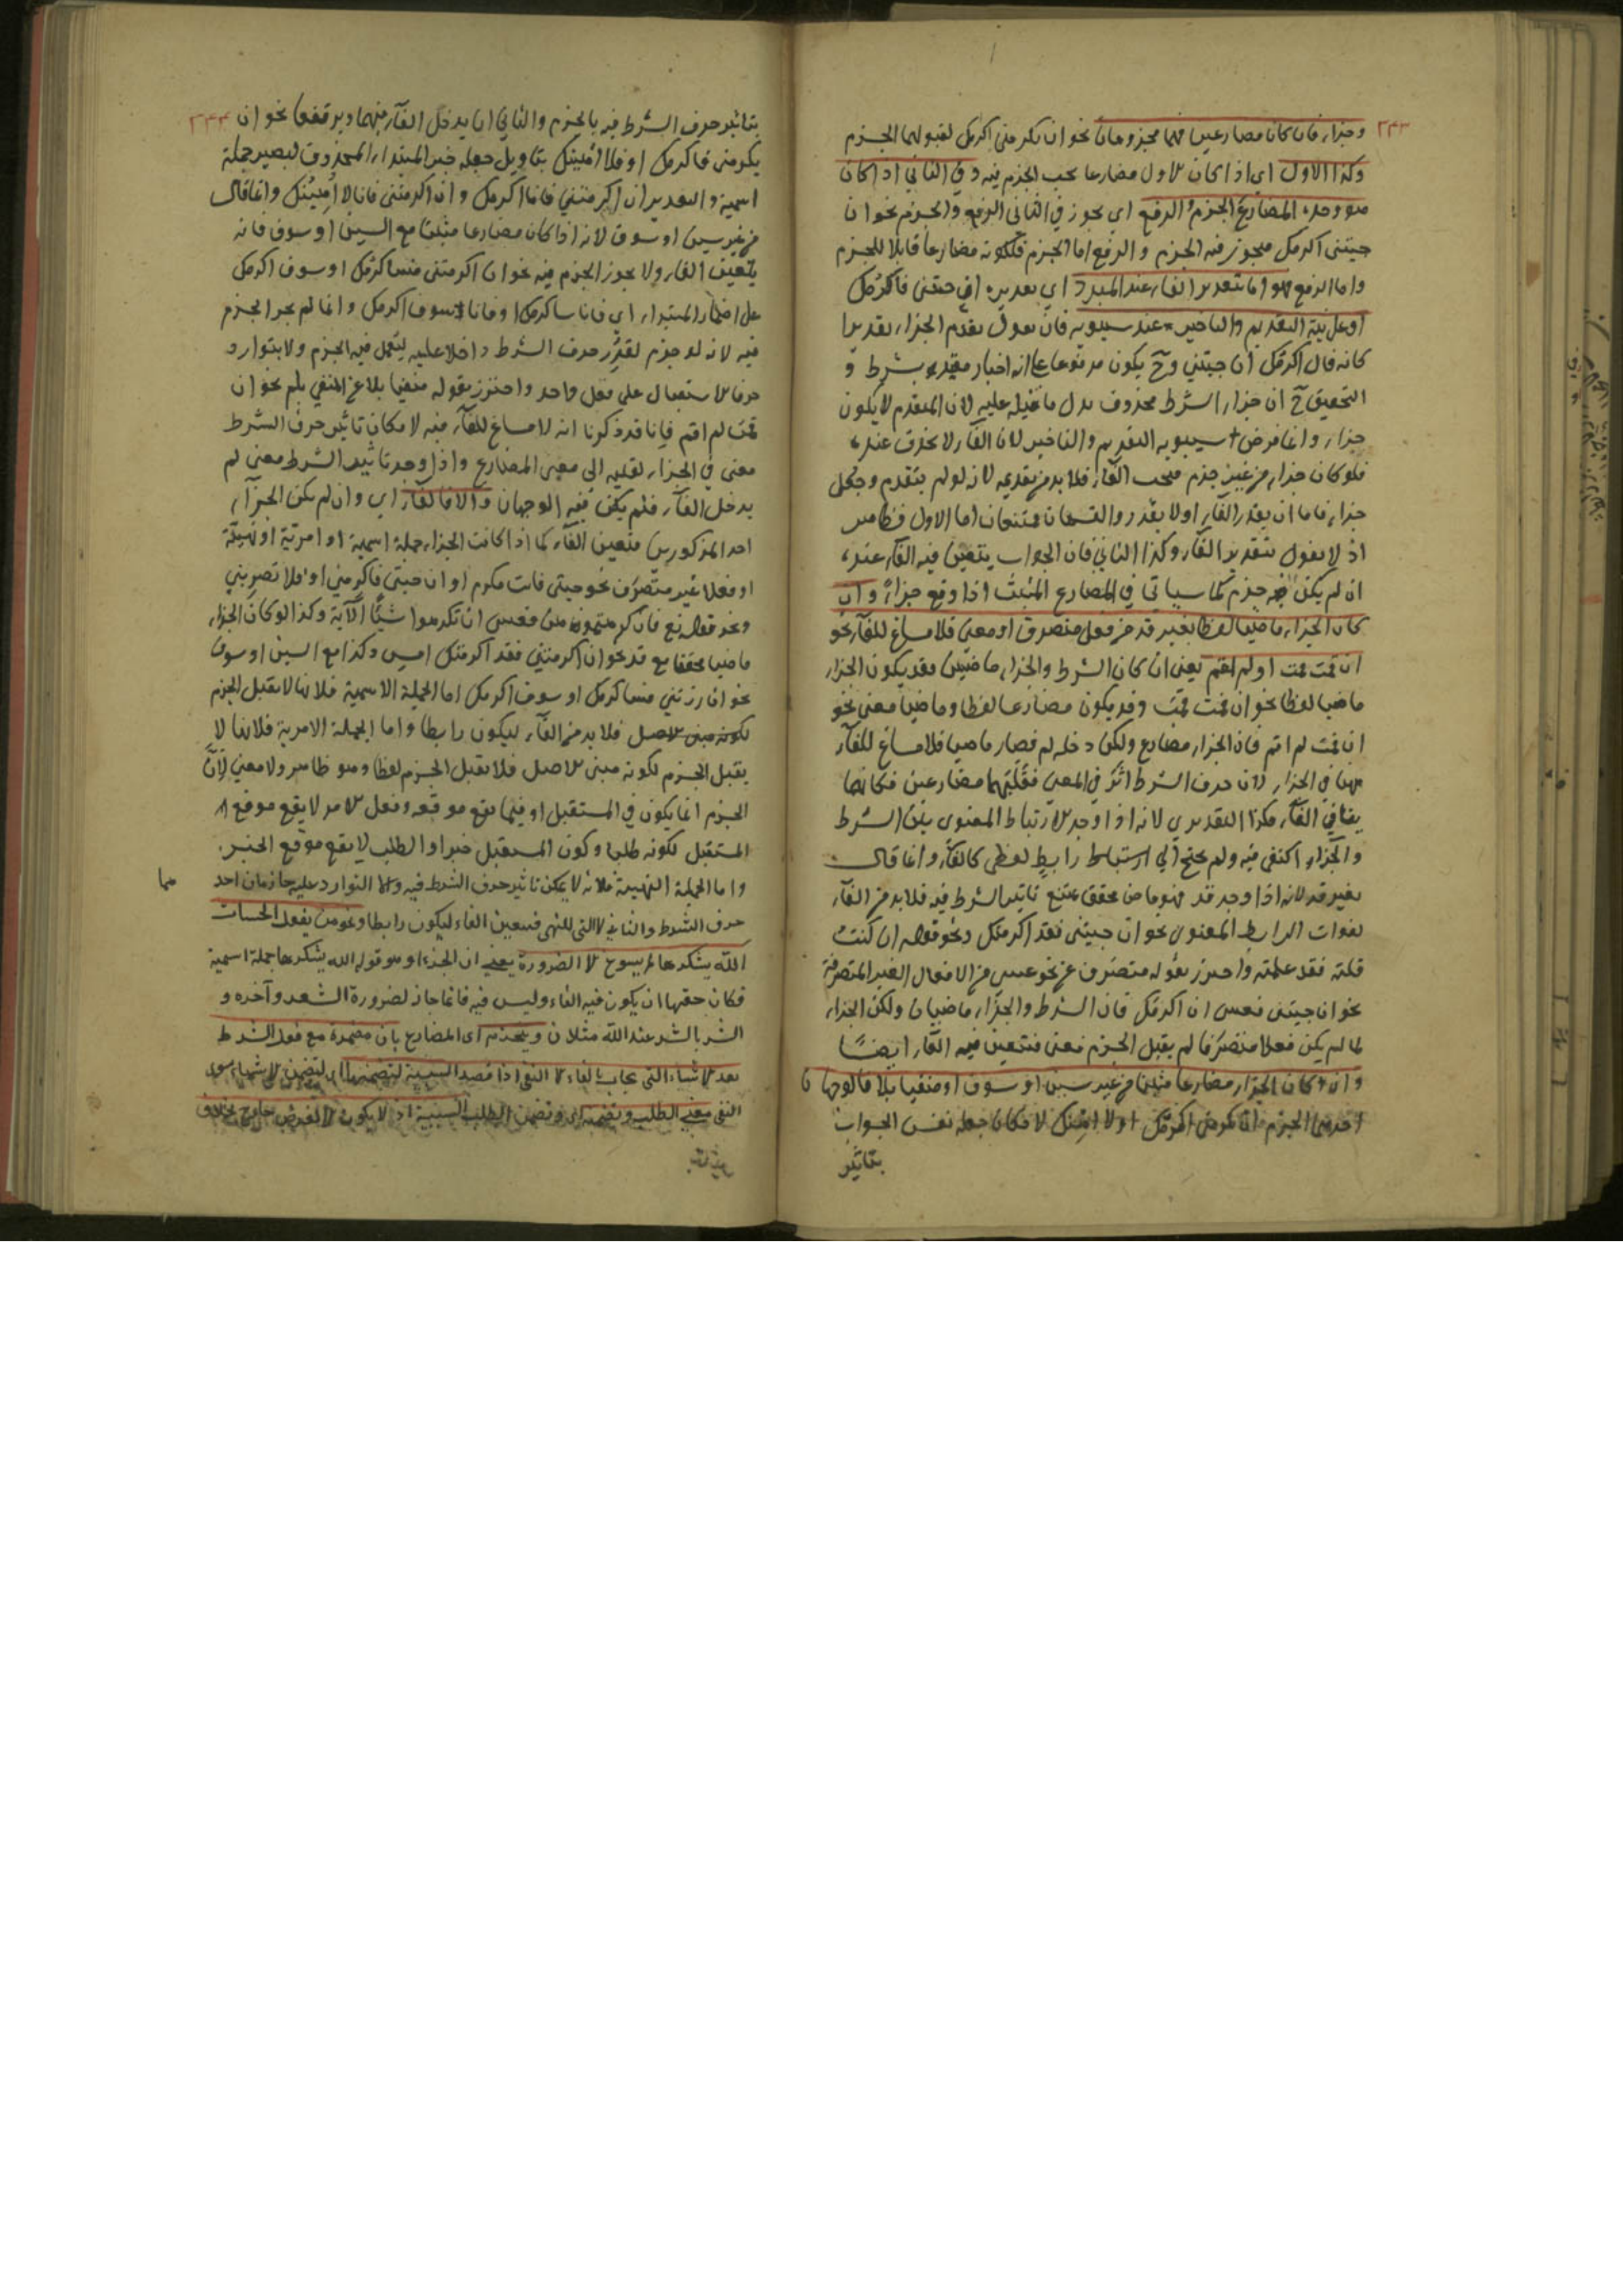 ٢٤٣
وجزاء فان كانا مضارعين فهما مجزومان نحو ان تكرمنى اكرمك لقبولهما الجزم
وكذا الاول اى اذا كان الاول مضارعا يجب الجزم فيه وفى الثانى اذا كان
هو وحده المضارع الجزم والرفع اى يجوز فى الثانى الرفع والجزم نحو ان
جيتنى اكرمك فيجوز فيه الجزم والرفع اما الجزم فلكونه مضارعا قابلا للجزم
واما الرفع فهو اما بتقدير الفاء عند المبرد اى بعديره ان جيتنى فاكرمك
او على نية التقديم والتاخير عند سيبويه فان يقول بقدم الجزاء تقديرا
كانه قال اكرمك ان جيتنى وح يكون مرفوعا على انه اخبار مقيد بشرط و
التحقيق ح ان جزاء الشرط محذوف يدل ما قبله عليه لان المتقدم لا يكون
جزاء وانما فرض سيبويه التقديم والتاخير لان الفاء لا يحذف عنده
فلو كان جزاء من غير جزم فيجب الفاء فلا بد من تقديمه لانه لو لم يتقدم وجعل
جزاء فاما ان يقدر الفاء او لا يقدر والقسمان ممتنعان اما الاول فظاهر
اذ لا يقول بتقدير الفاء وكذا الثانى فان الجواب يتعين فيه الفاء عنده
ان لم يكن فيه جزم كما سياتى فى المضارع المثبت اذا وقع جزاء وان
كان الجزاء ماضيا لفظا بغير قد من فعل متصرف او معنى فلا مساغ للفاء نحو
ان قمت قمت او لم اقم يعنى ان كان الشرط والجزاء ماضيين فقد يكون الجزاء
ماضيا لفظا نحو ان قمت قمت وقد يكون مضارعا لفظا وماضيا معنى نحو
ان قمت لم اقم فان الجزاء مضارع ولكن دخله لم فصار ماضيا فلا مساغ للفاء
ههنا فى الجزاء لان حرف الشرط اثر فى المعنى فقلبهما مضارعين فكانهما
ينافى الفاء هكذا التقديرى لانه اذا وجد الارتباط المعنوى بين الشرط
والجزاء اكتفى فيه ولم يحتج الى ارتباط رابط لفظى كالفاء وانما قال
بغير قد لانه اذا وجد قد فهو ماض محقق يمتنع تاثير الشرط فيه فلا بد من الفاء
لفوات الرابط المعنوى نحو ان جيتنى فقد اكرمتك ونحو قوله ان كنت
قلته فقد علمته واحترز بقوله متصرف عن نحو عسى من الافعال الغير المتصرفة
نحو ان جيتنى فعسى ان اكرمك فان الشرط والجزاء ماضيان ولكن الجزاء
لما لم يكن فعلا متصرفا لم يقبل الجزم معنى فتتعين فيه الفاء ايضا
وان كان الجزاء مضارعا مثبتا من غير سين او سوف او منفيا بلا فالوجهان
احدهما الجزم ان تكرمنى اكرمك او لا اهنك لامكان جعله نفس الجواب
بتاثير
٢٤٤
بتاثير حرف الشرط فيه بالجزم والثانى ان يدخل الفاء فيهما ويرفعهما نحو ان
يكرمنى فاكرمك او فلا اهينك بتاويل جعله خبر المبتداء المحذوف ليصير جملة
اسمية والتقدير ان اكرمتنى فانا اكرمك وان اكرمتنى فانا لا اهينك وانما قال
من غير سين او سوف لانه اذا كان مضارعا مثبتا مع السين او سوف فانه
يتعين الفاء ولا يجوز الجزم فيه نحو ان اكرمتنى فساكرمك او سوف اكرمك
على اضمار المبتداء اى فانا ساكرمك او فانا سوف اكرمك وانما لم يجز الجزم
فيه لانه لو جزم لقدر حرف الشرط داخلا عليه ليعمل فيه الجزم ولا يتوارد
حرفا الاستقبال على فعل واحد واحترز بقوله منفيا بلا عن المنفى بلم نحو ان
قمت لم اقم فانا قد ذكرنا انه لا مساغ للفاء فيه لامكان تاثير حرف الشرط
معنى فى الجزاء لقلبه الى معنى المضارع واذا وجد تاثير الشرط معنى لم
يدخل الفاء فلم يكن فيه الوجهان والا فالفاء اى وان لم يكن الجزاء
احد المذكورين فتعين الفاء كما اذا كانت الجزاء جملة اسمية او امرية او نهيية
او فعلا غير متصرف نحو جيتنى فانت مكرم او ان جيتنى فاكرمنى او فلا تضربنى
ونحو قوله تع فان كرهتموهن فعسى ان تكرهوا شيئا الآية وكذا لو كان الجزاء
ماضيا محققا مع قد نحو ان اكرمتنى فقد اكرمتك امس وكذا مع السين او سوف
نحو ان زرتنى فساكرمك او سوف اكرمك اما الجملة الاسمية فلانها لا يقبل الجزم
لكونه مبنى الاصل فلا بد من الفاء ليكون رابطا واما الجملة الامرية فلانها لا
يقبل الجزم لكونه مبنى الاصل فلا يقبل الجزم لفظا وهو ظاهر ولا معنى لان
الجزم انما يكون فى المستقبل او فيما يقع موقعه وفعل الامر لا يقع موقع
المستقبل لكونه طلبا وكون المستقبل خبرا والطلب لا يقع موقع الخبر
واما الجملة النهيية فلانه لا يمكن تاثير حرف الشرط فيه والا لتوارد عليه جازمان احدهما
حرف الشرط والثانى لا التى للنهى فتعين الفاء ليكون رابطا ونحو من يفعل الحسنات
الله يشكرها لم يسوغ الا لضرورة يعنى ان الجزاء وهو قوله الله يشكرها جملة اسمية
فكان حقها ان يكون فيه الفاء وليس فيه فانما جاز لضرورة الشعر وآخره و
الشر بالشر عند الله مثلان وينجزم اى المضارع بان مضمرة مع فعل الشرط
بعد الاشياء التى يجاب بالفاء الا النفى اذا قصد السببية لتضمنها اى لتضمن الاشياء سوى
النفى معنى الطلب وتضمنه اى وتضمن الطلب السببية اذ لا يكون الا لغرض خارج بخلاف